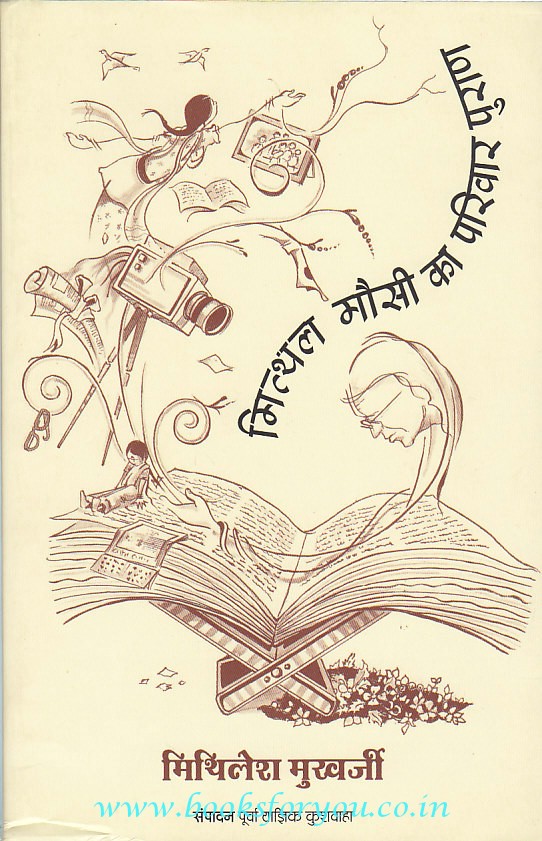 मित्थल मौसी का परिवार पुराण
मिथिलेश मुखर्जी
www.booksforyou.co.in
संपादन पूर्वा याज्ञिक कुशवाहा